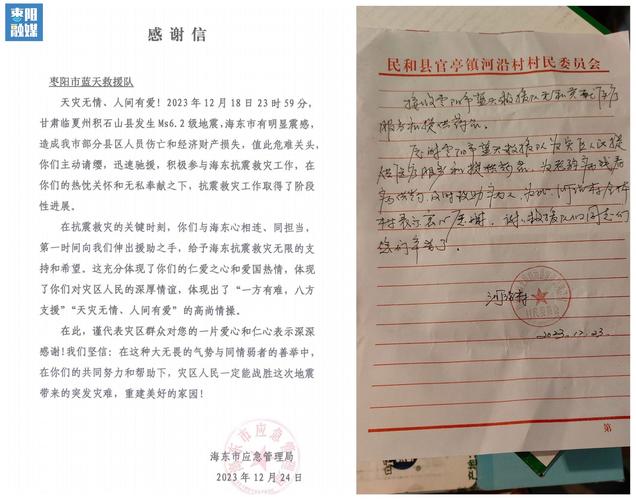 枣阳
融媒
感谢信
枣阳市蓝天救援队
天灾无情、人间有爱！2023年12月18日23时59分，
甘肃临夏州积石山县发生Ms6.2级地震，海东市有明显震感，
造成我市部分县区人员伤亡和经济财产损失，值此危难关头，
你们主动请缨，迅速驰援，积极参与海东抗震救灾工作，在
你们的热忱关怀和无私奉献之下，抗震救灾工作取得了阶段
性进展。
在抗震救灾的关键时刻，你们与海东心相连、同担当，
第一时间向我们伸出援助之手，给予海东抗震救灾无限的支
持和希望。这充分体现了你们的仁爱之心和爱国热情，体现
了你们对灾区人民的深厚情谊，体现出了“一方有难，八方
支援”“天灾无情、人间有爱”的高尚情操。
在此，谨代表灾区群众对您的一片爱心和仁心表示深深
感谢！我们坚信：在这种大无畏的气势与同情弱者的善举中，
在你们的共同努力和帮助下，灾区人民一定能战胜这次地震
带来的突发灾难，重建美好的家园！
海东市应急管理局
2023年12月24日
民和县官亭镇河沿村村民委员会
接收枣阳市蓝天救援队无私奉献医疗
服务和提供药品
枣阳市蓝天救援队为灾区人民提
供医疗服务和提供药品，为老弱病残看
病供药，及时救助病人，为此，河沿村全体
村表示衷心感谢，谢救援队们同志们
你们辛苦了。
河沿村
2023.12.23
第